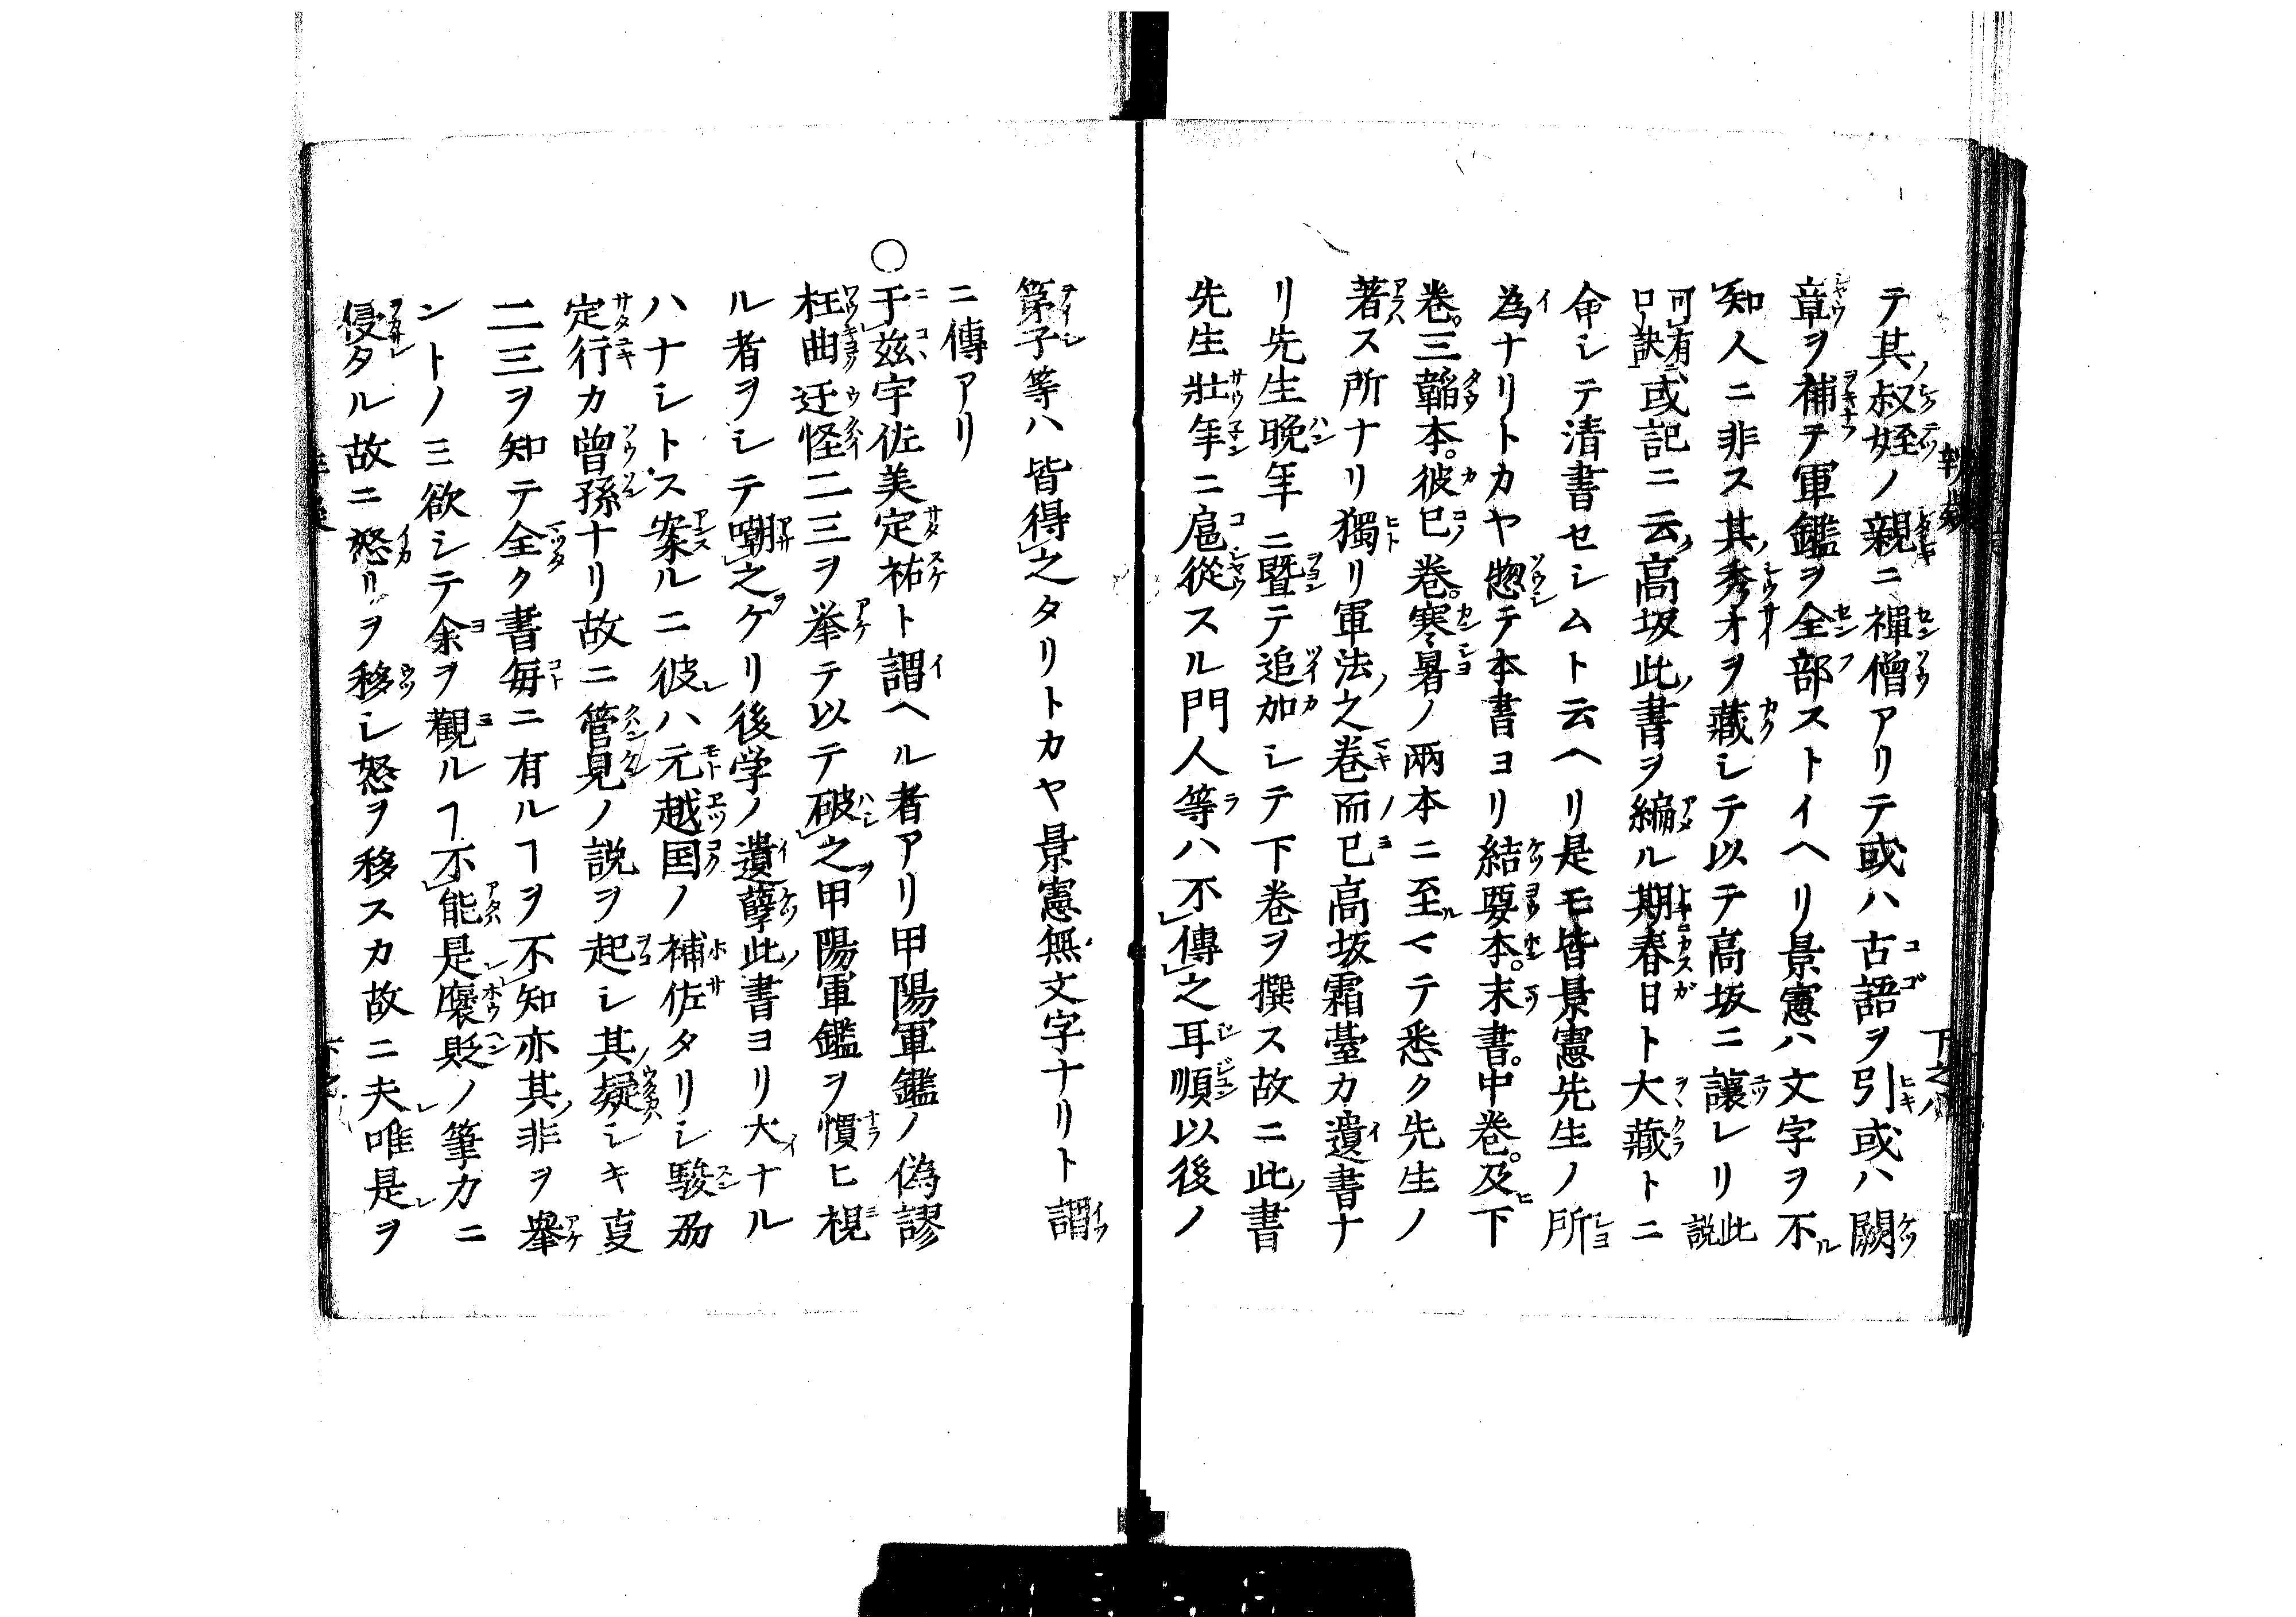 テ其叔姪ノ親ニ禪僧アリテ或ハ古語ヲ引或ハ闕
章ヲ補テ軍鑑ヲ全部ストイヘリ景憲ハ文字ヲ不
知人ニ非ス其秀才ヲ藏シテ以テ高坂ニ讓レリ此説
可有口訣或記ニ云高坂此書ヲ編ル期春日ト大藏トニ
命シテ清書セシムト云ヘリ是モ皆景憲先生ノ所
為ナリトカヤ惣テ本書ヨリ結要本。末書。中巻。及下
巻。三韜本。彼巳巻。寒暑ノ兩本ニ至マテ悉ク先生ノ
著ス所ナリ獨リ軍法之巻而已高坂霜臺カ遺書ナ
リ先生晩年ニ曁テ追加シテ下巻ヲ撰ス故ニ此書
先生壯年ニ扈從スル門人等ハ不傳之耳順以後ノ
第子等ハ皆得之タリトカヤ景憲無文字ナリト謂
ニ傳アリ
○于茲宇佐美定祐ト謂ヘル者アリ甲陽軍鑑ノ偽謬
枉曲迂怪二三ヲ挙テ以テ破之甲陽軍鑑ヲ慣ヒ視
ル者ヲシテ嘲之ケリ後学ノ遺孽此書ヨリ大ナル
ハナシトス案ルニ彼ハ元越国ノ補佐タリシ駿刕
定行カ曽孫ナリ故ニ管見ノ説ヲ起シ其疑シキ叓
二三ヲ知テ全ク書毎ニ有ルヿヲ不知亦其非ヲ擧
ントノミ欲シテ余ヲ觀ルヿ不能是褒貶ノ筆力ニ
侵タル故ニ怒リヲ移シ怒ヲ移スカ故ニ夫唯是ヲ